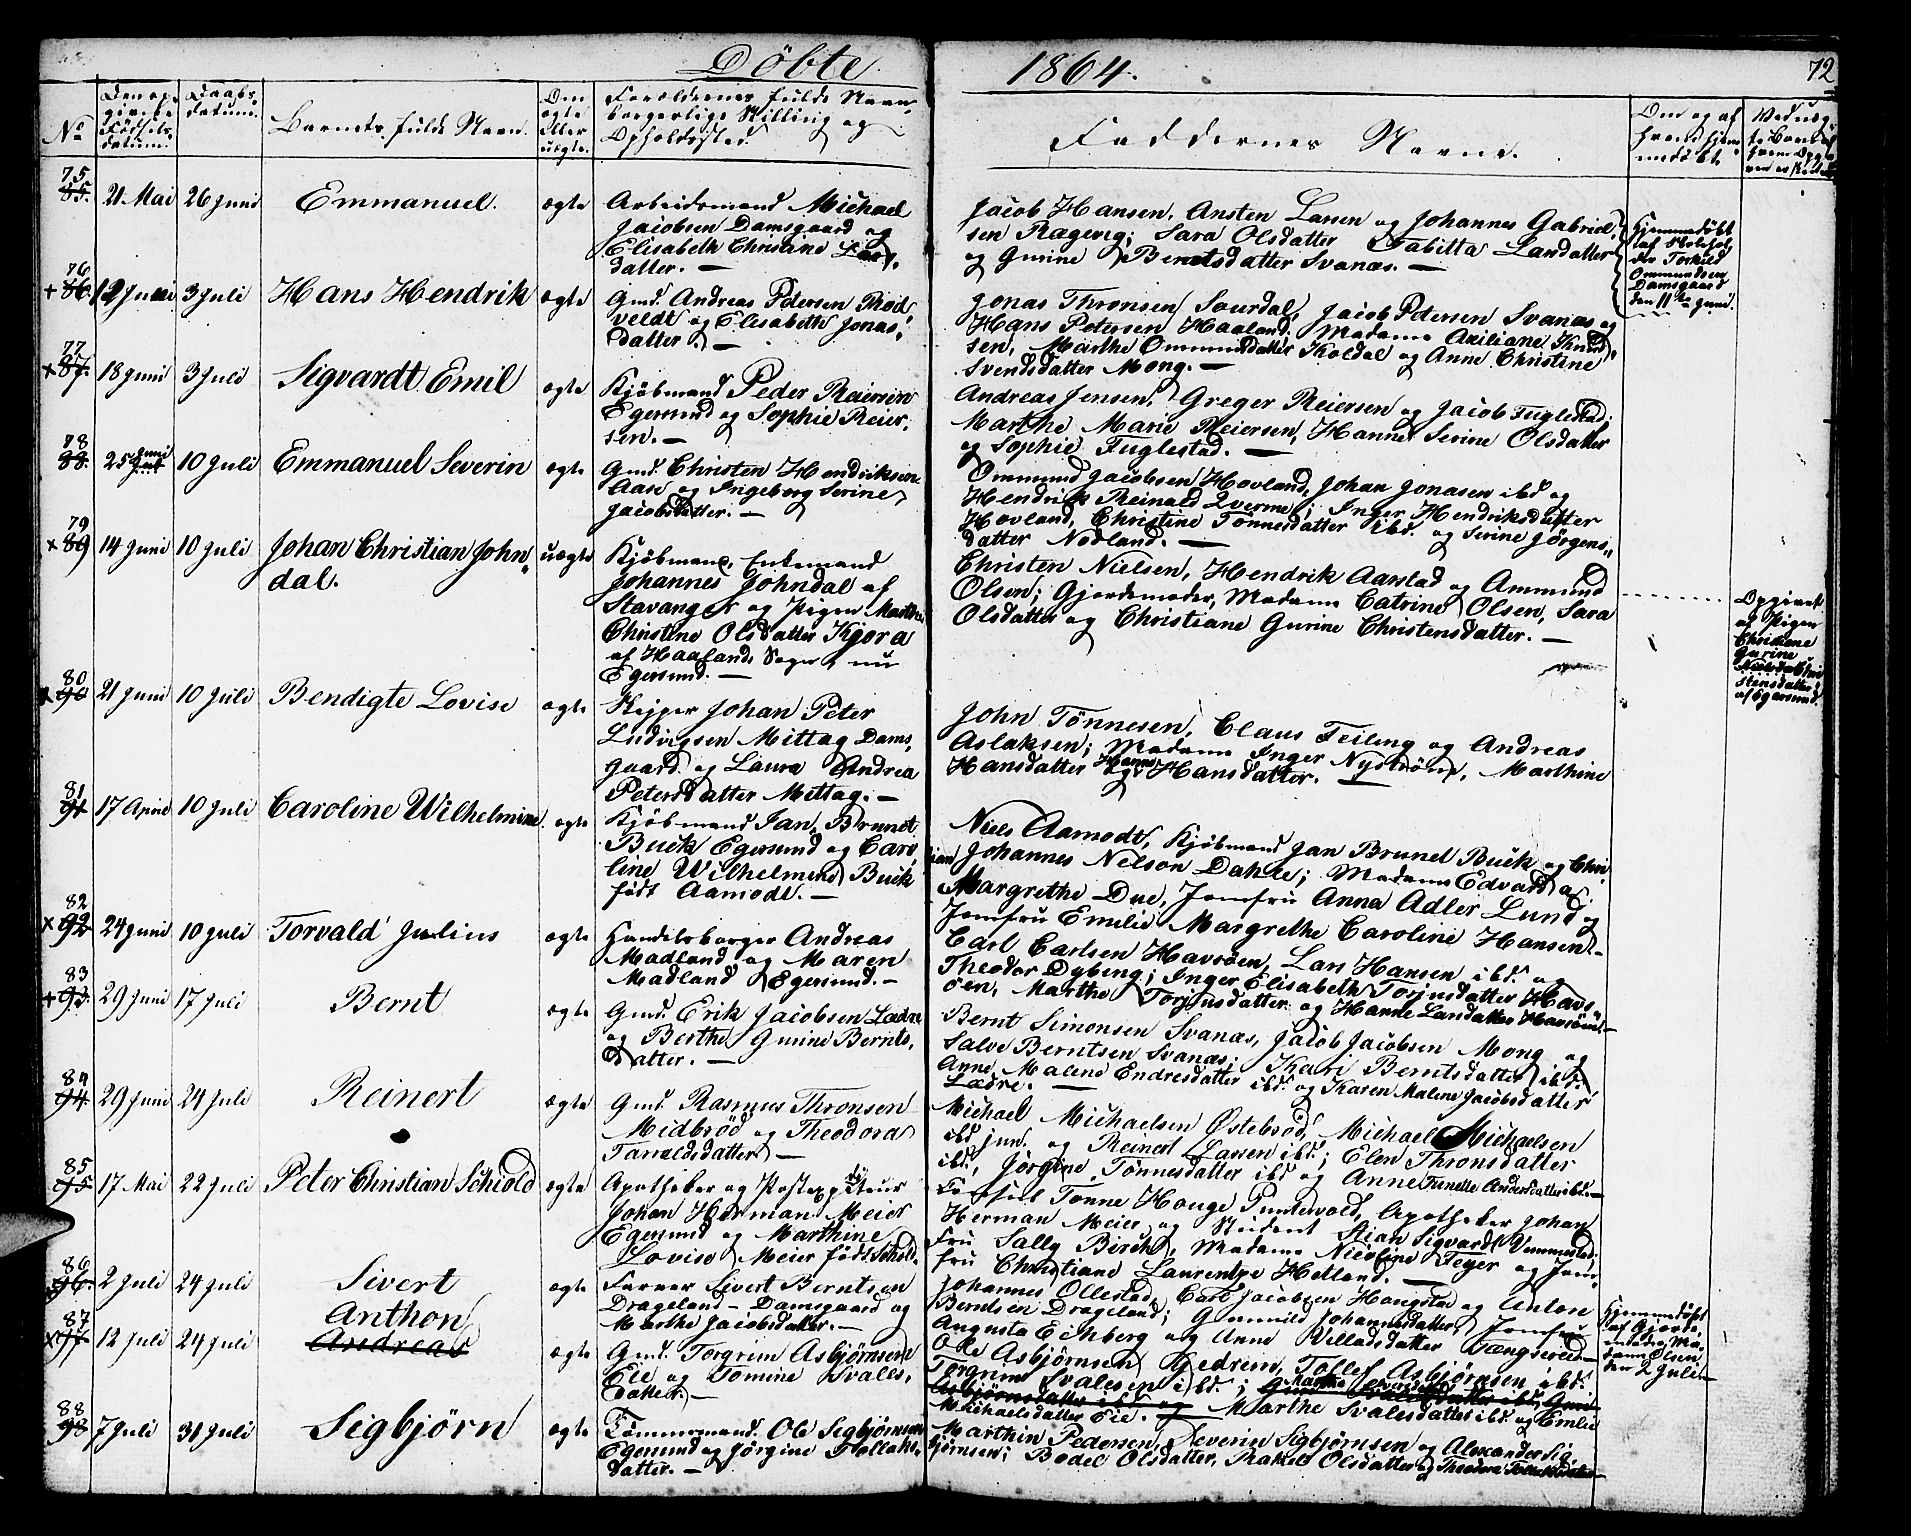 Döbte
1864.
72
No
Den op-
givne
Födsels-
datum.
Daabs-
datum.
Barnets fulde Navn.
Om
ægte
eller
uægte.
Forældrenes fulde Navn,
borgerlige Stilling og
Opholdssted.
Faddernes Navne.
Om og af
hvem hjem-
medöbt
75
85.
21 Mai
26 Juni
Emmanuel.
ægte
Arbeidsmand Michael
Jacobsen Damsgaard og
Elisabeth Christine Lars-
datter. —
Jacob Hansen, Ansten Larsen og Johannes Gabriel-
sen Rægevig; Sara Olsdatter, Tabitta Larsdatter
og Gurine Berntsdatter Svanæs. —
Hjemmedöbt
af Torkild
Ommundsen
Damsgaard
den 11te Juni.
76
+ 86
12 Juni
3 Juli
Hans Hendrik
ægte
Gmd. Andreas Petersen Thod-
veldt og Elisabeth Jonas-
datter. —
Jonas Thronsen Saurdal, Jacob Petersen Svanæs og
Hans Petersen Haaland; Madame Axiliane Knud-
sen, Marthe Ommundsdatter Koldal og Anne Christine
Svendsdatter Mong. —
77
+ 87.
18 Juni
3 Juli
Sigvardt Emil
ægte
Kjöbmand Peder Reiersen
Egersund og Sophie Reier-
sen. —
Andreas Jensen, Greger Reiersen og Jacob Fuglestad;
Marthe Marie Reiersen, Hanne Serine Olsdatter
og Sophie Fuglestad. —
78
88.
25 Juni
10 Juli
Emmanuel Severin
ægte
Gmd. Christen Hendriksen
Aase og Ingeborg Serine
Jacobsdatter. —
Ommund Jacobsen Hovland, Johan Jonasen ibd og
Hendrik Reinald Qverme; Inger Hendriksdatter
Hovland, Christine Tönnesdatter ibd. og Serine Jörgens-
datter Nodland. —
79
x 89
14 Juni
10 Juli
Johan Christian John-
dal.
uægte
Kjöbmand, Enkemand
Johannes Johndal af
Stavanger og Pigen Marthe
Christine Olsdatter Kjora
af Haalands Sogn, nu
Egersund. —
Christen Nielsen, Hendrik Aarstad og Ammund
Olsen; Gjordemoder, Madame Catrine Olsen, Sara
Olsdatter og Christiane Gurine Christensdatter. —
Opgivet
af Pigen
Christiane
Gurine
Christensdatter
af Egersund.
80
x 90
21 Juni
10 Juli
Bendigte Lovise
ægte
Skipper Johan Peter
Ludvigsen Mittag Dams-
gaard og Laura Andrea
Petersdatter Mittag. —
John Tönnesen, Claus Feiling og Andreas
Aslaksen; Madame Inger Nyström, Marthine
Hansdatter og Hanne Hansdatter. —
81
91
17 April
10 Juli
Caroline Wilhelmine.
ægte
Kjöbmand Jan Brunet
Buck Egersund og Caro-
line Wilhelmine Buck
födt Aamodt. —
Niels Aamodt, Kjöbmand Jan Brunet Buck og Chri-
stian Johannes Nelson Dahle; Madame Edvarda
Margrethe Due, Jomfru Anna Adler Lund og
Jomfru Emilie Margrethe Caroline Hansen —
82
x 92
24 Juni
10 Juli
Torvald Julius
ægte
Handelsborger Andreas
Madland og Maren
Madland Egersund. —
Carl Carlsen Havsöen, Lars Hansen ibd. og
Theodor Dybing; Inger Elisabeth Torjusdatter Havs-
öen, Marthe Torjusdatter og Hanne Larsdatter Havsöen —
83
+ 93.
29 Juni
17 Juli
Bernt
ægte
Gmd. Erik Jacobsen Lædre
og Berthe Gurine Bernts-
datter. —
Bernt Simonsen Svanæs, Jacob Jacobsen Mong og
Salve Berntsen Svanæs; Kari Berntsdatter ibd.
Anne Malene Endresdatter ibd. og Karen Malene Jacobsdatter
Lædre. —
84
94.
29 Juni
24 Juli
Reinert
ægte
Gmd. Rasmus Thronsen
Midbröd og Theodora
Taraldsdatter —
Michael Michaelsen Östebröd, Michael Michaelsen
ibd jun. og Reinert Larsen ibd.; Elen Thronsdatter
ibd., Jörgine Tönnesdatter ibd og Anne Tunette Andersdatter ibd. —
85
95
17 Mai
22 Juli
Peter Christian Schiold
ægte
Apotheker og Postexpediteur
Johan Herman Meier
Egersund og Marthine
Lovise Meier födt Schiold.
Tönne Hauge Puntervold, Apotheker Johan
Herman Meier og Student Stian Sigvard Vemmestad;
Fru Sally Birch, Madame Nicoline Feyer og Jom-
fru Christiane Laurentze Hetland. —
86
96.
2 Juli
24 Juli
Sivert
ægte
Farver Sivert Berntsen
Drageland — Damsgaard og
Marthe Jacobsdatter. —
Johannes Ollestad, Carl Jacobsen Haugstad og Anton
Berntsen Drageland; Gunnild Johannesdatter, Jomfru
Augusta Eichberg og Anne Villadsdatter
Hjemmedöbt
af Gjorde-
moder Ma-
dame Olsen
den 2 Juli —
87
x 97
12 Juli
24 Juli
Anthon
Andreas
ægte
Gmd. Torgrim Asbjörnsen
Eie og Tomine Svales-
datter. —
Ole Asbjörnsen Gedrem, Tollef Asbjörnsen ibd.
Torgrim Svalesen ibd.;
Asbjörnsdatter ibd og
Michaelsdatter Eie. og Marthe Svalesdatter ibd og Emlie
88
98
7 Juli
31 Juli
Sigbjörn
ægte
Tömmermand Ole Sigbjörnsen
Egersund og Jörgine Tollaks-
datter. —
Marthin Pedersen, Severin Sigbjörnsen og Alexander Sig-
björnsen; Bodel Olsdatter, Rakel Olsdatter og Theodora